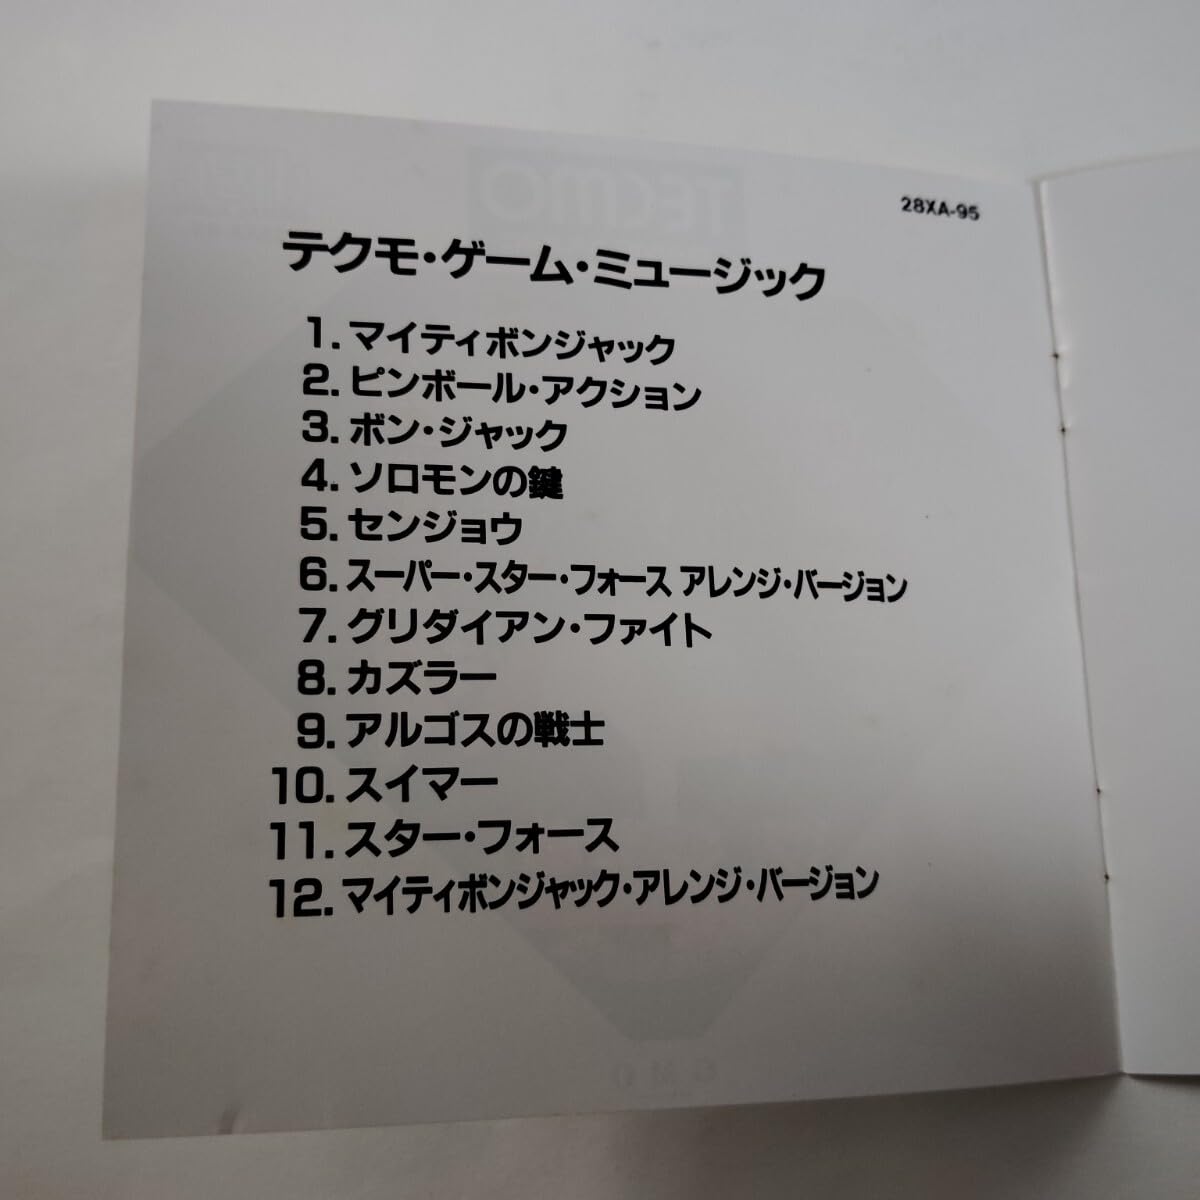 28XA-95
テクモ・ゲーム・ミュージック
1. マイティボンジャック
2. ピンボール・アクション
3. ボン・ジャック
4. ソロモンの鍵
5. センジョウ
6. スーパー・スター・フォース アレンジ・バージョン
7. グリダイアン・ファイト
8. カズラー
9. アルゴスの戦士
10. スイマー
11. スター・フォース
12. マイティボンジャック・アレンジ・バージョン
TECMO
G M O